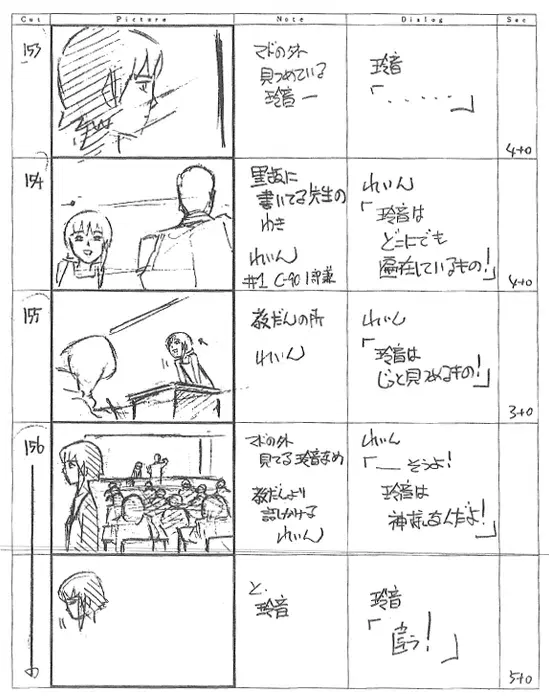 Cut Picture Note Dialog Sec
153
マドの外
見つめている
玲音ー
玲音
「・・・・・」
4+0
154
黒板に
書いてる先生の
わき
れいん
#1 C-90
れいん
「玲音は
どこにでも
遍在しているもの!」
4+0
155
教だんの所
れいん
れいん
「玲音は
じっと見つめるもの!」
3+0
156
マドの外
見てる玲音なめ
教だんより
話しかける
れいん
れいん
「―そうよ!
玲音は
神様なんだよ!」
と、
玲音
玲音
「違う!」
5+0